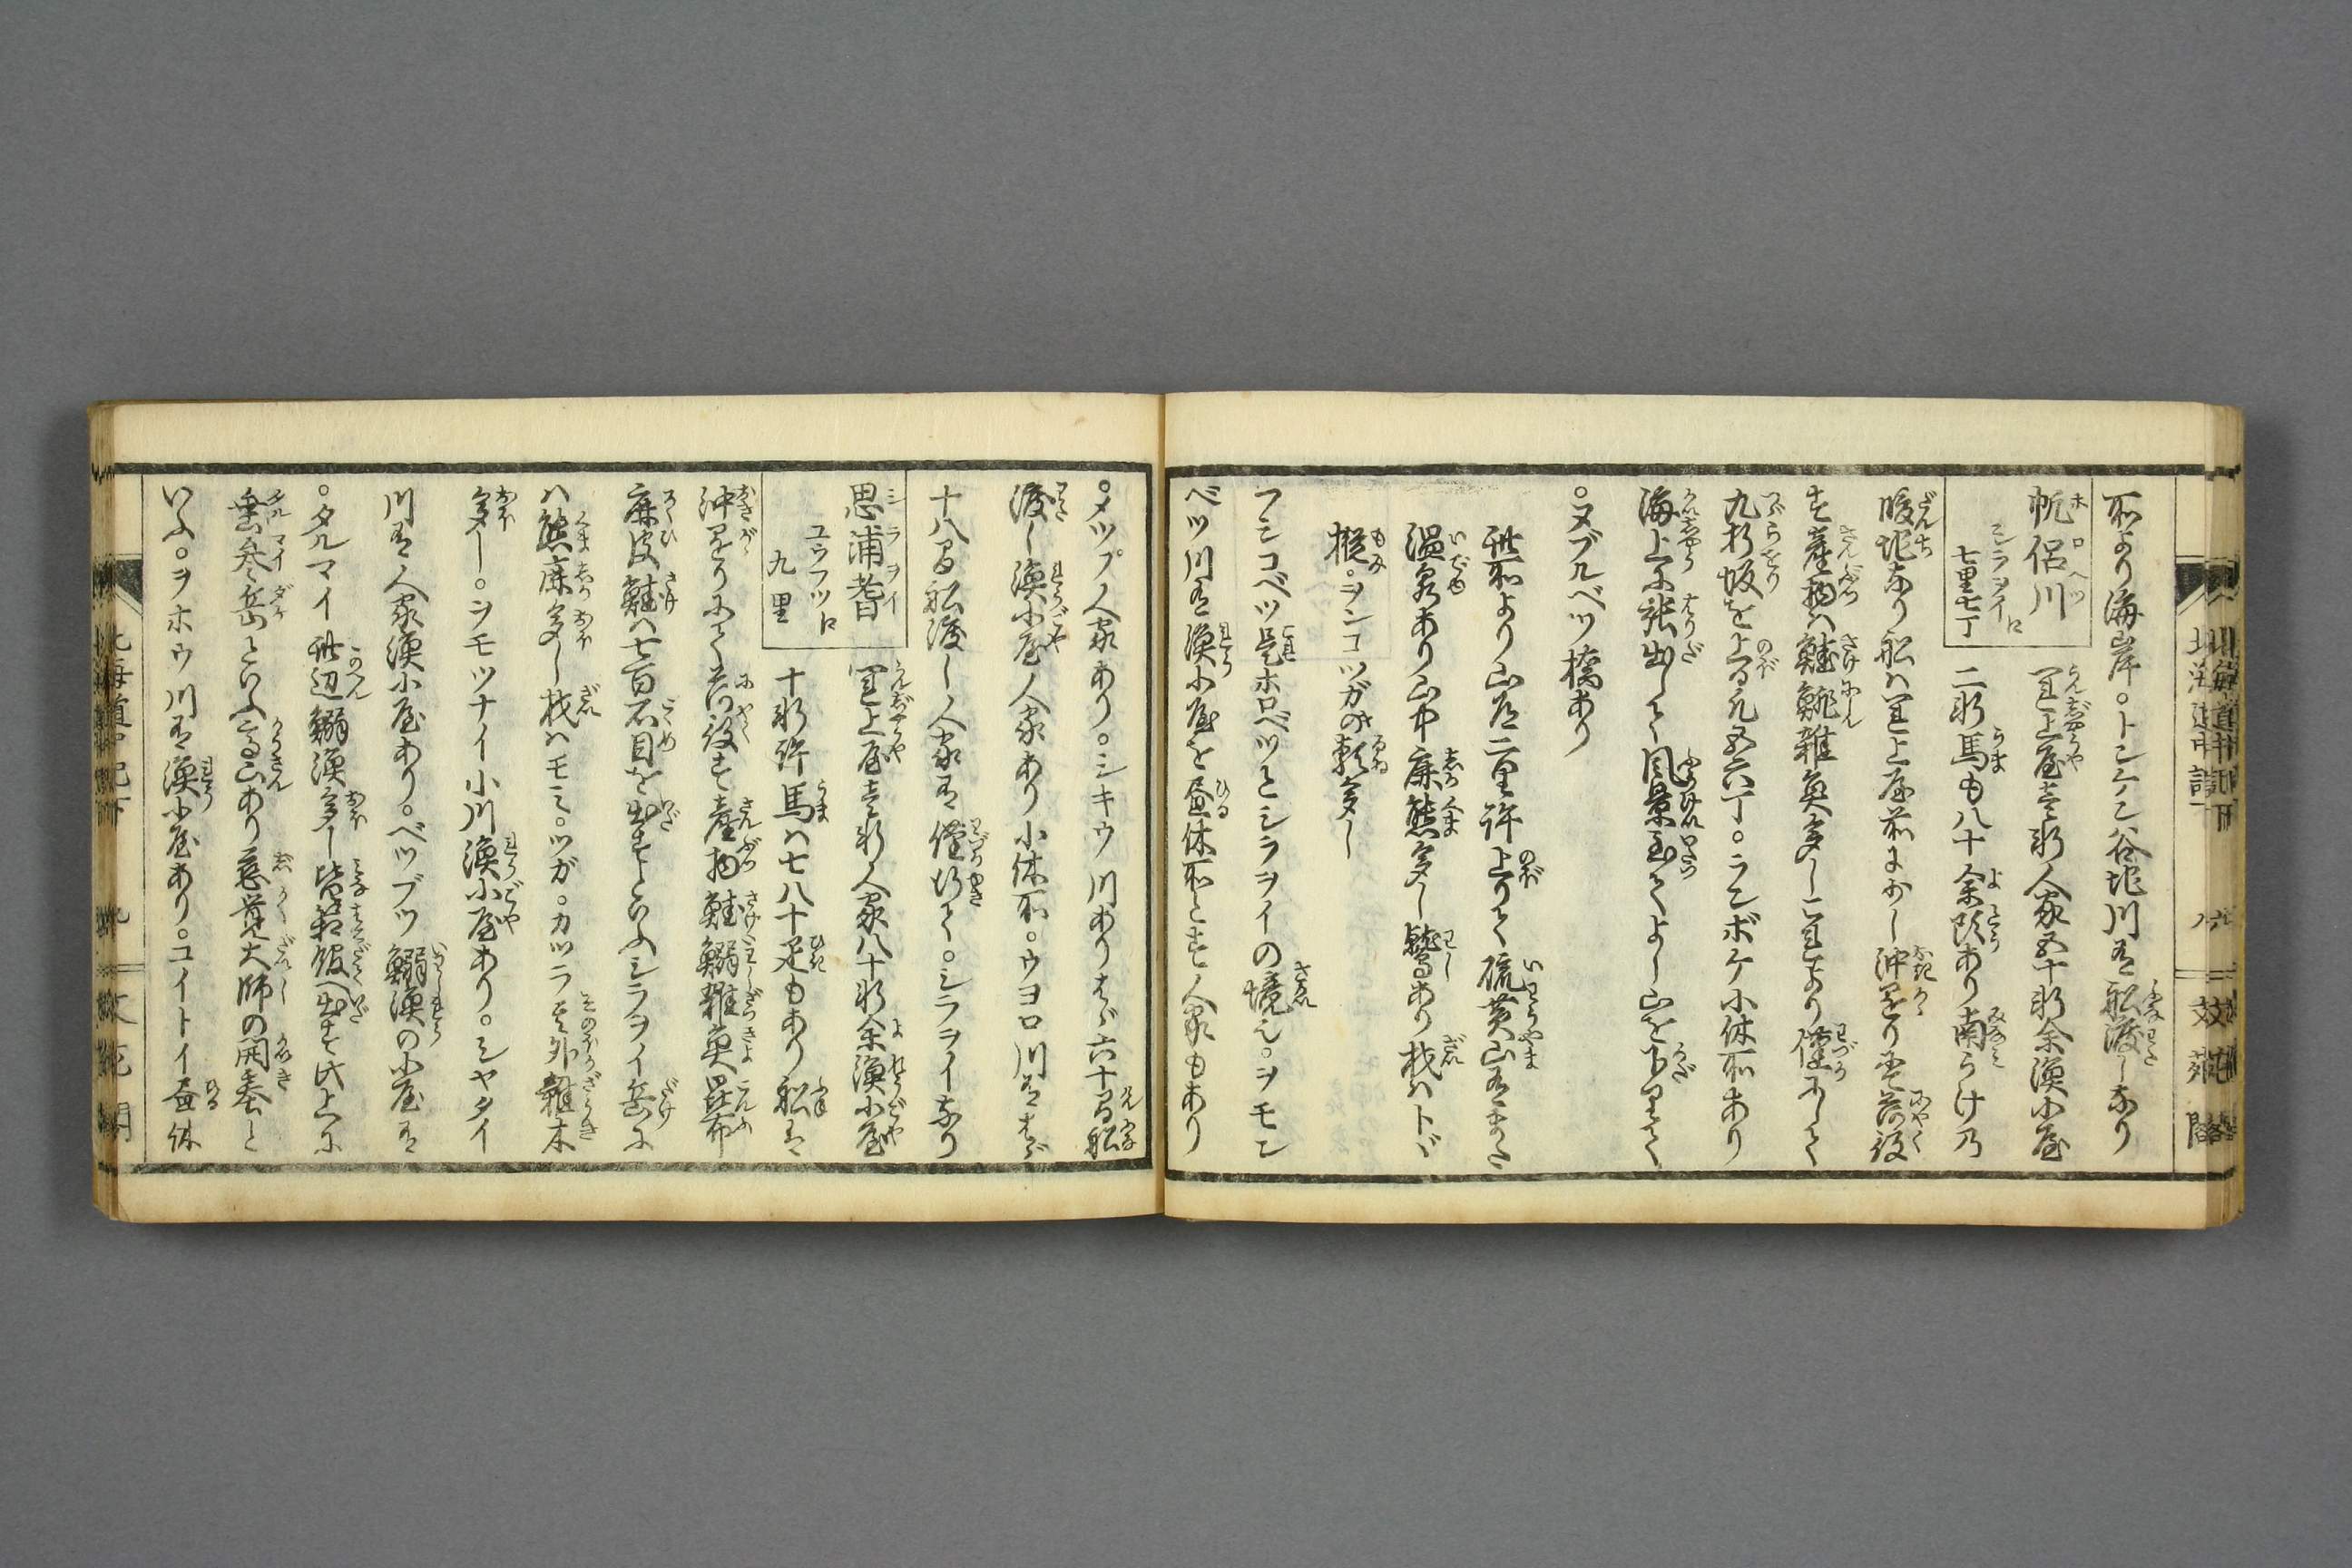 所より海岸。トンケシ谷地川有船渡しあり
帆侶川 運上屋壱軒人家五十軒余漁小屋
ホロヘツ
シラヲイ口
七里七丁
二軒馬も八十余頭あり南うけ乃
暖地なり船は運上屋前によし沖通りにて荷役
す産物ハ鮭鯡雑魚多し是より僅にして
九折坂を上る凡五六丁。ランボケ小休所あり
海上に張出して風景至てよし山を下りて
。ヌブルベツ橋あり
此所より山道二里許上りて硫黄山有また
温泉あり山中鹿熊多し鷲あり材ハトド
樅。ヲンコツガの類多し
フシコベツ是ホロベツとシラヲイの境也。ヲモン
ベツ川有漁小屋を昼休所とす人家もあり
。メツプ人家あり。シキウ川ありはゞ六十間船
渡し漁小屋人家あり小休所。ウヨロ川有はゞ
十八間船渡し人家有僅行て。シラヲイなり
思浦耆 運上屋壱軒人家八十軒余漁小屋
シラヲイ
ユウフツ口
九里
十軒許馬ハ七八十疋もあり船は
沖通りにて荷役す産物鮭鰯雑魚昆布
鹿皮鮭ハ七百石目を出すといふシラヲイ岳に
ハ熊鹿多し材ハモミ。ツガ。カツラ其外雑木
多し。ヲモツナイ小川漁小屋あり。シヤタイ
川有人家漁小屋あり。ベツブツ鰯漁の小屋有
。タルマイ此辺鰯漁多し皆箱館へ出す此上に
垂舞岳といふ高山あり慈覚大師の開基と
いふ。ヲホウ川有漁小屋あり。コイトイ昼休
北海道中記下
文苑閣